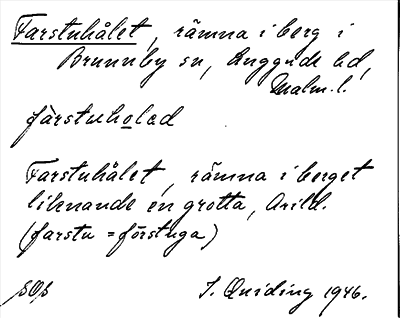 Farstuhålet, rämna i berg i
Brunnby sn, Luggude hd,
Malm. l.
fàrstuholəd
Farstuhålet, rämna i berget
liknande en grotta, Arild.
(farstu = förstuga)
sOs I. Quiding 1946.